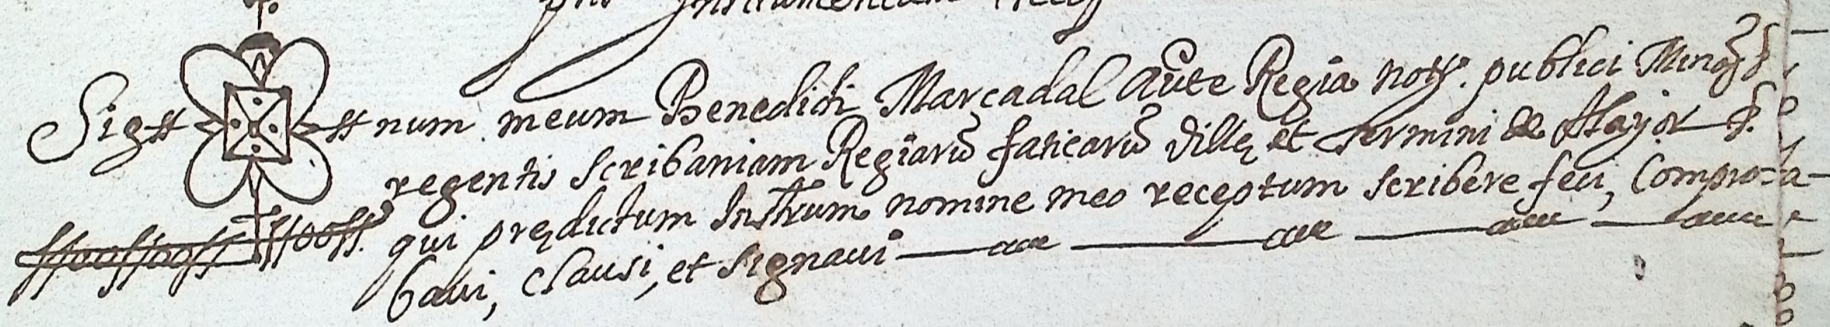 Sig++num meum Benedicti Marçadal Aūte Regia Noty. publici Minoꝝ
regentis scribaniam Regiarū faticarū Villę et Termini de Alayor
qui prędictum Instrum nomine meo receptum scribere feci, Compro-
baui, clausi, et signaui